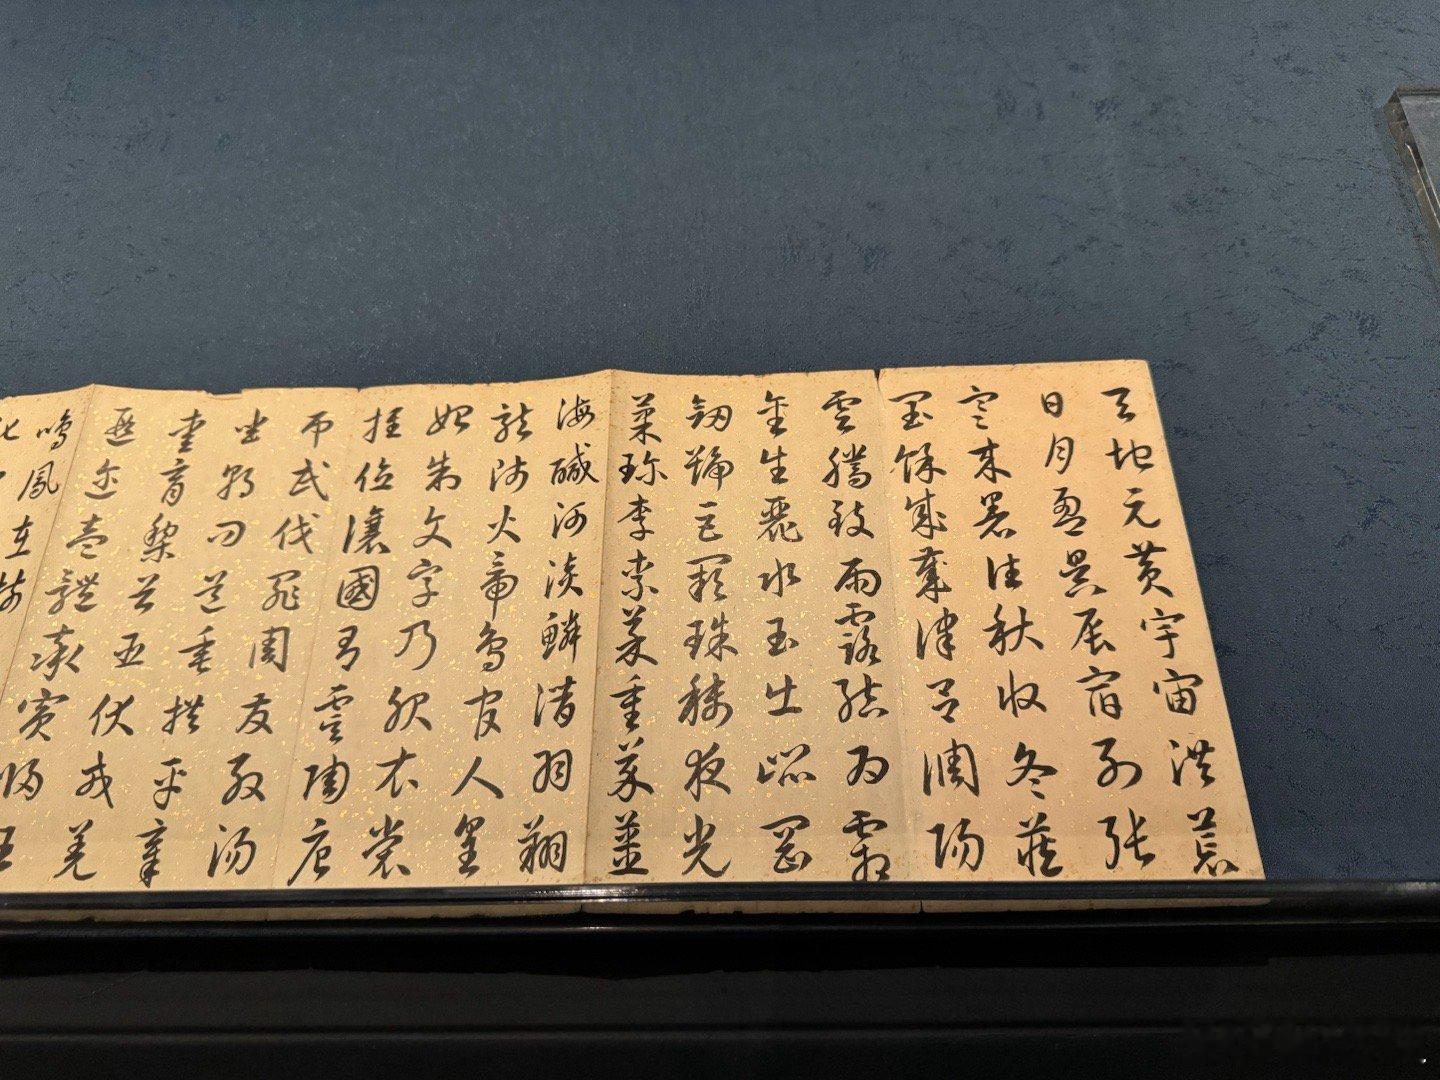 天地元黃宇宙洪荒
日月盈昃辰宿列張
寒來暑往秋收冬藏
閏餘成歲律呂調陽
雲騰致雨露結為霜
金生麗水玉出崑岡
劍號巨闕珠稱夜光
菓珍李柰菜重芥薑
海鹹河淡鱗潛羽翔
龍師火帝鳥官人皇
始制文字乃服衣裳
推位讓國有虞陶唐
弔民伐罪周發殷湯
坐朝問道垂拱平章
愛育黎首臣伏戎羌
遐邇壹體率賓歸王
鳴鳳在樹
化